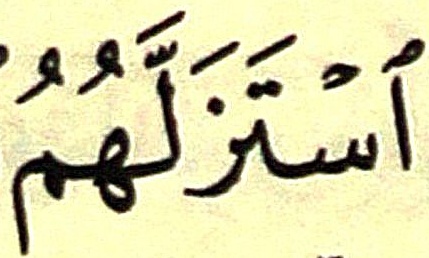 ٱسۡتَزَلَّهُمُ